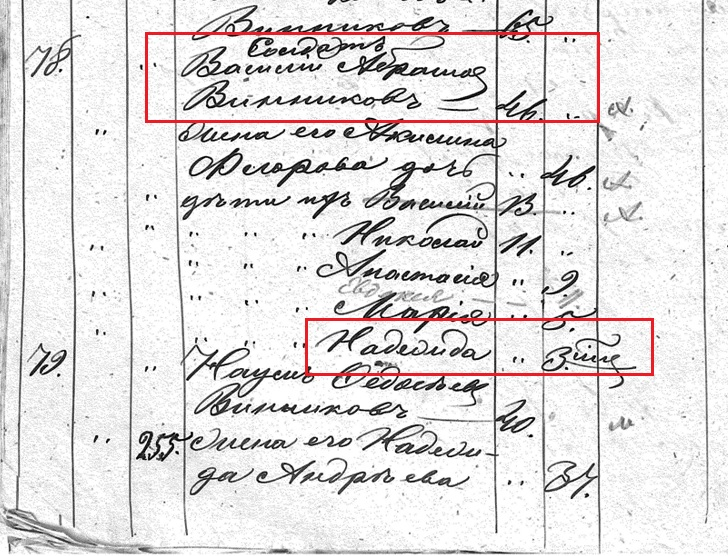 Винниковъ — 65. "
Солдатъ
78. " Василій Абрамов
Винниковъ — 46. "
" жена его Акилина
Ѳедорова дочь " 46.
" дѣти ихъ Василій 13. "
" " " " Николай 11. "
" " " " Анастасія " 9.
Евдокія — —
" " " " Марія " 5.
" " " " Надежда " 3.
79. " Наумъ Ѳедосѣев
Винниковъ — 40.
" 255. жена его Надеж-
да Андрѣева " 37.